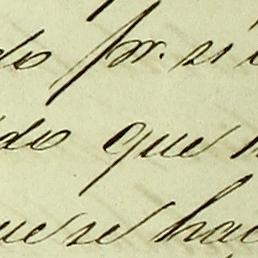 do pr. si
do que
que se hac